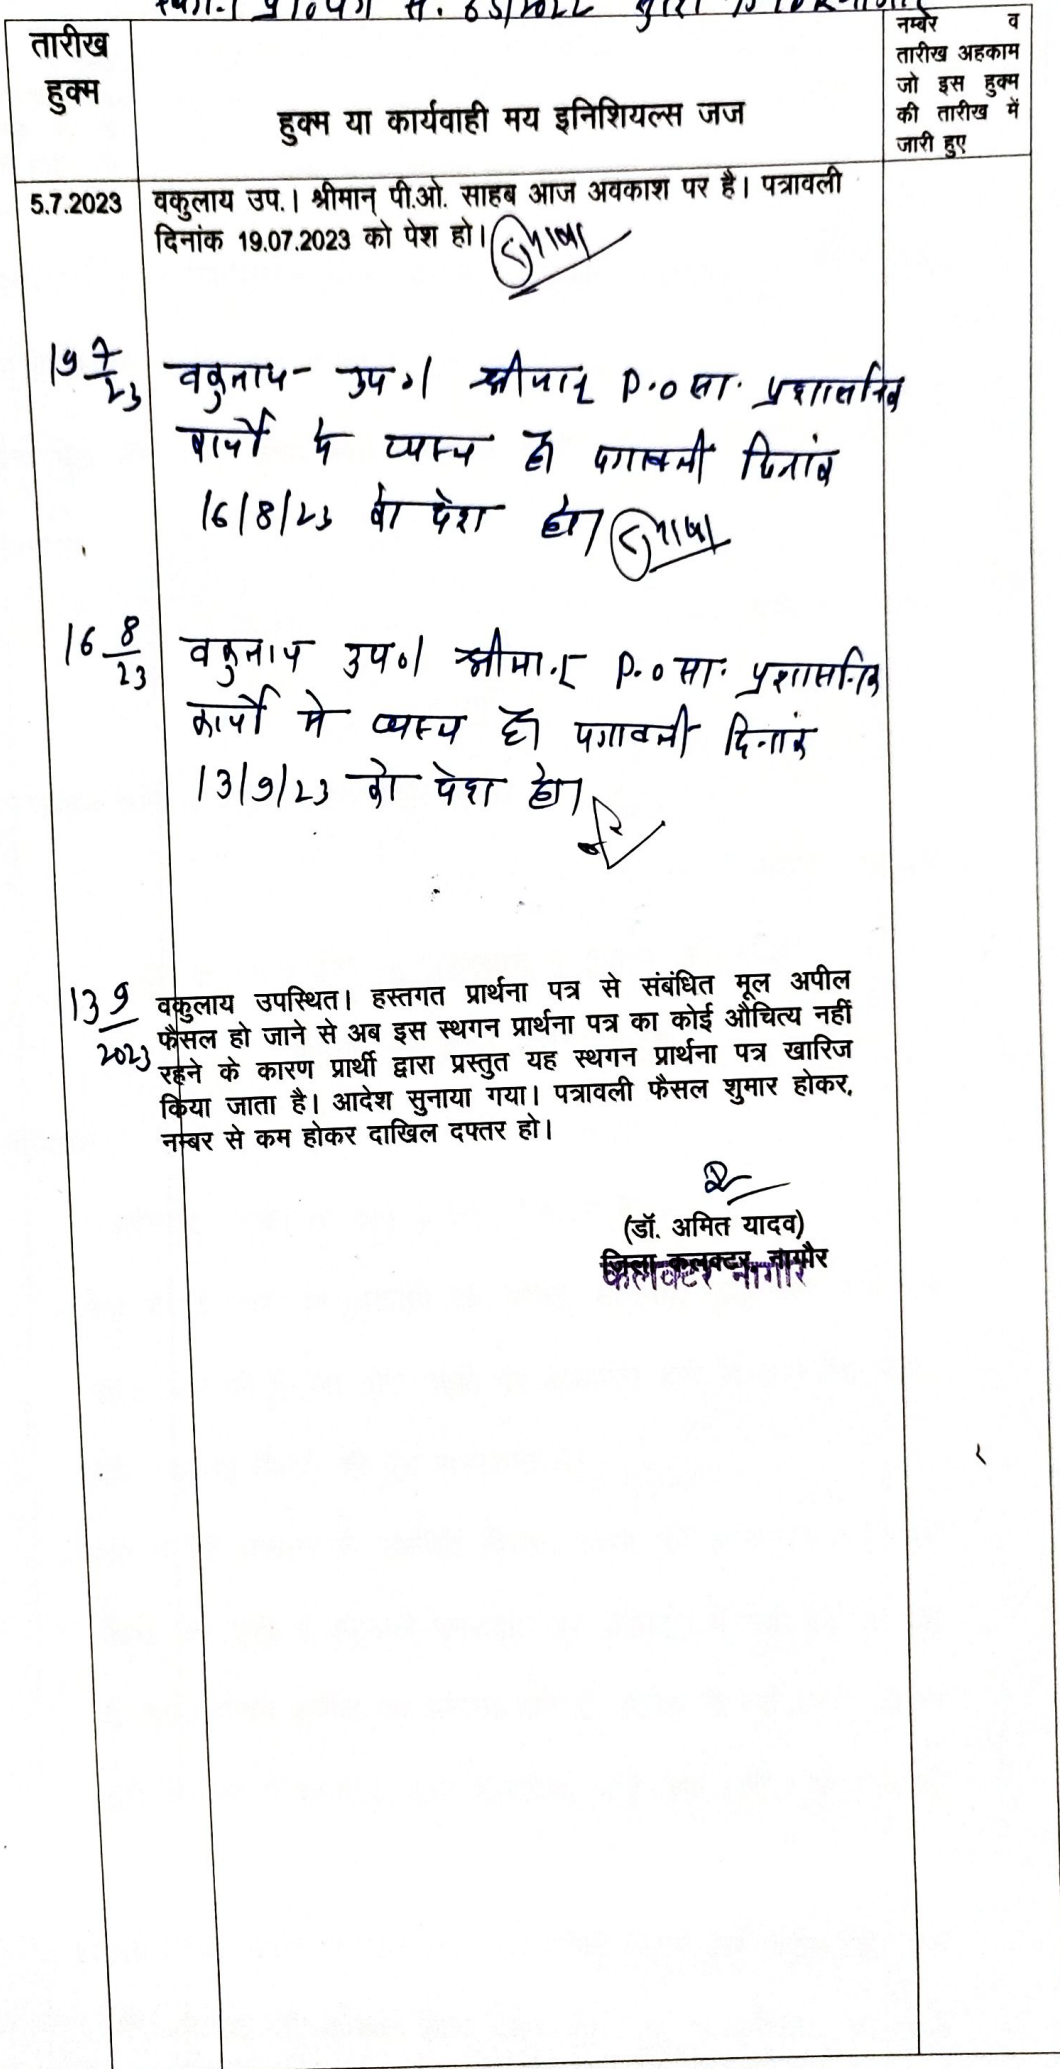 सं. 65/2022
तारीख
हुक्म
हुक्म या कार्यवाही मय इनिशियल्स जज
नम्बर व
तारीख अहकाम
जो इस हुक्म
की तारीख में
जारी हुए
5.7.2023 वकुलाय उप.। श्रीमान् पी.ओ. साहब आज अवकाश पर है। पत्रावली
दिनांक 19.07.2023 को पेश हो।
19 7/23 वकुलाय उप०। श्रीमान् P.O सा. प्रशासनिक
कार्यों में व्यस्त है। पत्रावली दिनांक
16/8/23 को पेश हो।
16 8/23 वकुलाय उप०। श्रीमान् P.O सा. प्रशासनिक
कार्यों मे व्यस्त है। पत्रावली दिनांक
13/9/23 को पेश हो।
13 9/2023 वकुलाय उपस्थित। हस्तगत प्रार्थना पत्र से संबंधित मूल अपील
फैसल हो जाने से अब इस स्थगन प्रार्थना पत्र का कोई औचित्य नहीं
रहने के कारण प्रार्थी द्वारा प्रस्तुत यह स्थगन प्रार्थना पत्र खारिज
किया जाता है। आदेश सुनाया गया। पत्रावली फैसल शुमार होकर,
नम्बर से कम होकर दाखिल दफ्तर हो।
(डॉ. अमित यादव)
जिला कलक्टर, नागौर
कलक्टर नागौर